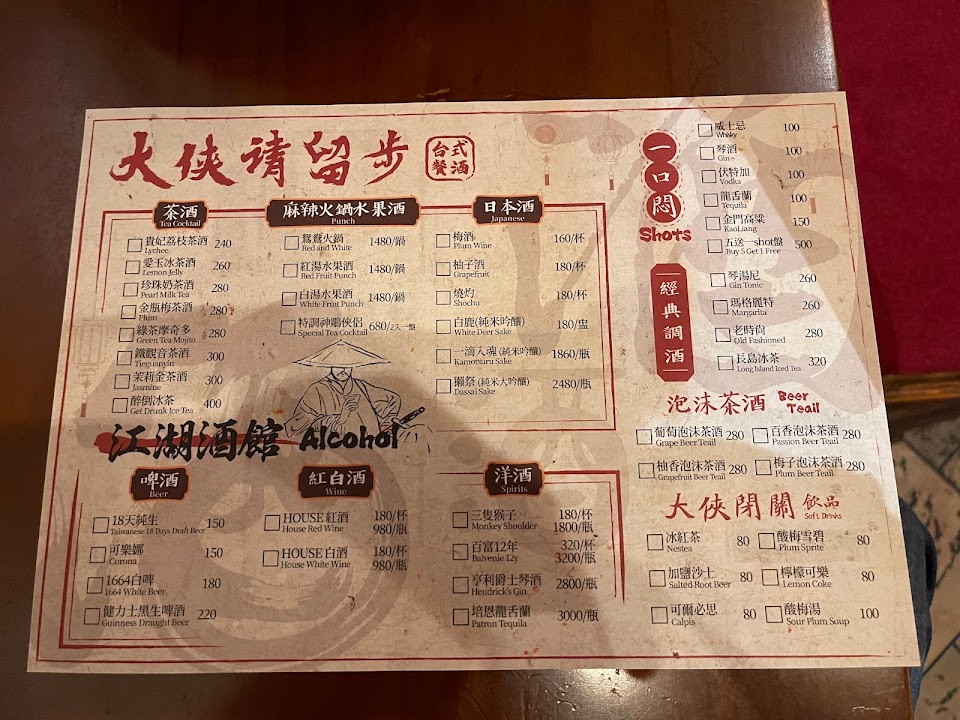 大俠請留步
台式
餐酒
茶酒
Tea Cocktail
貴妃荔枝茶酒 240
Lychee
愛玉冰茶酒 260
Lemon Jelly
珍珠奶茶酒 280
Pearl Milk Tea
金瓶梅茶酒 280
Plum
綠茶摩奇多 280
Green Tea Mojito
鐵觀音茶酒 300
Tieguanyin
茉莉金茶酒 300
Jasmine
醉倒冰茶 400
Get Drunk Ice Tea
麻辣火鍋水果酒
Punch
鴛鴦火鍋 1480/鍋
Red and White
紅湯水果酒 1480/鍋
Red Fruit Punch
白湯水果酒 1480/鍋
White Fruit Punch
特調神鵰俠侶 680/2入一盤
Special Tea Cocktail
日本酒
Japanese
梅酒 160/杯
Plum Wine
柚子酒 180/杯
Grapefruit
燒灼 180/杯
Shochu
白鹿(純米吟釀) 180/盅
White Deer Sake
一滴入魂(純米吟釀) 1860/瓶
Kamotsuru Sake
獺祭(純米大吟釀) 2480/瓶
Dassai Sake
江湖酒館 Alcohol
啤酒
Beer
18天純生 150
Taiwanese 18 Days Draft Beer
可樂娜 150
Corona
1664白啤 180
1664 White Beer
健力士黑生啤酒 220
Guinness Draught Beer
紅白酒
Wine
HOUSE 紅酒 180/杯
House Red Wine 980/瓶
HOUSE 白酒 180/杯
House White Wine 980/瓶
洋酒
Spirits
三隻猴子 180/杯
Monkey Shoulder 1800/瓶
百富12年 320/杯
Balvenie 12y 3200/瓶
亨利爵士琴酒 2800/瓶
Hendrick's Gin
培恩龍舌蘭 3000/瓶
Patron Tequila
一口悶
Shots
威士忌 100
Whisky
琴酒 100
Gin
伏特加 100
Vodka
龍舌蘭 100
Tequila
金門高粱 150
KaoLiang
五送一shot盤 500
Buy 5 Get 1 Free
經典調酒
琴湯尼 260
Gin Tonic
瑪格麗特 260
Margarita
老時尚 280
Old Fashioned
長島冰茶 320
Long Island Iced Tea
泡沫茶酒 Beer
Teail
葡萄泡沫茶酒 280
Grape Beer Teail
百香泡沫茶酒 280
Passion Beer Teail
柚香泡沫茶酒 280
Grapefruit Beer Teail
梅子泡沫茶酒 280
Plum Beer Teail
大俠閉關 飲品
Soft Drinks
冰紅茶 80
Nestea
酸梅雪碧 80
Plum Sprite
加鹽沙士 80
Salted Root Beer
檸檬可樂 80
Lemon Coke
可爾必思 80
Calpis
酸梅湯 100
Sour Plum Soup